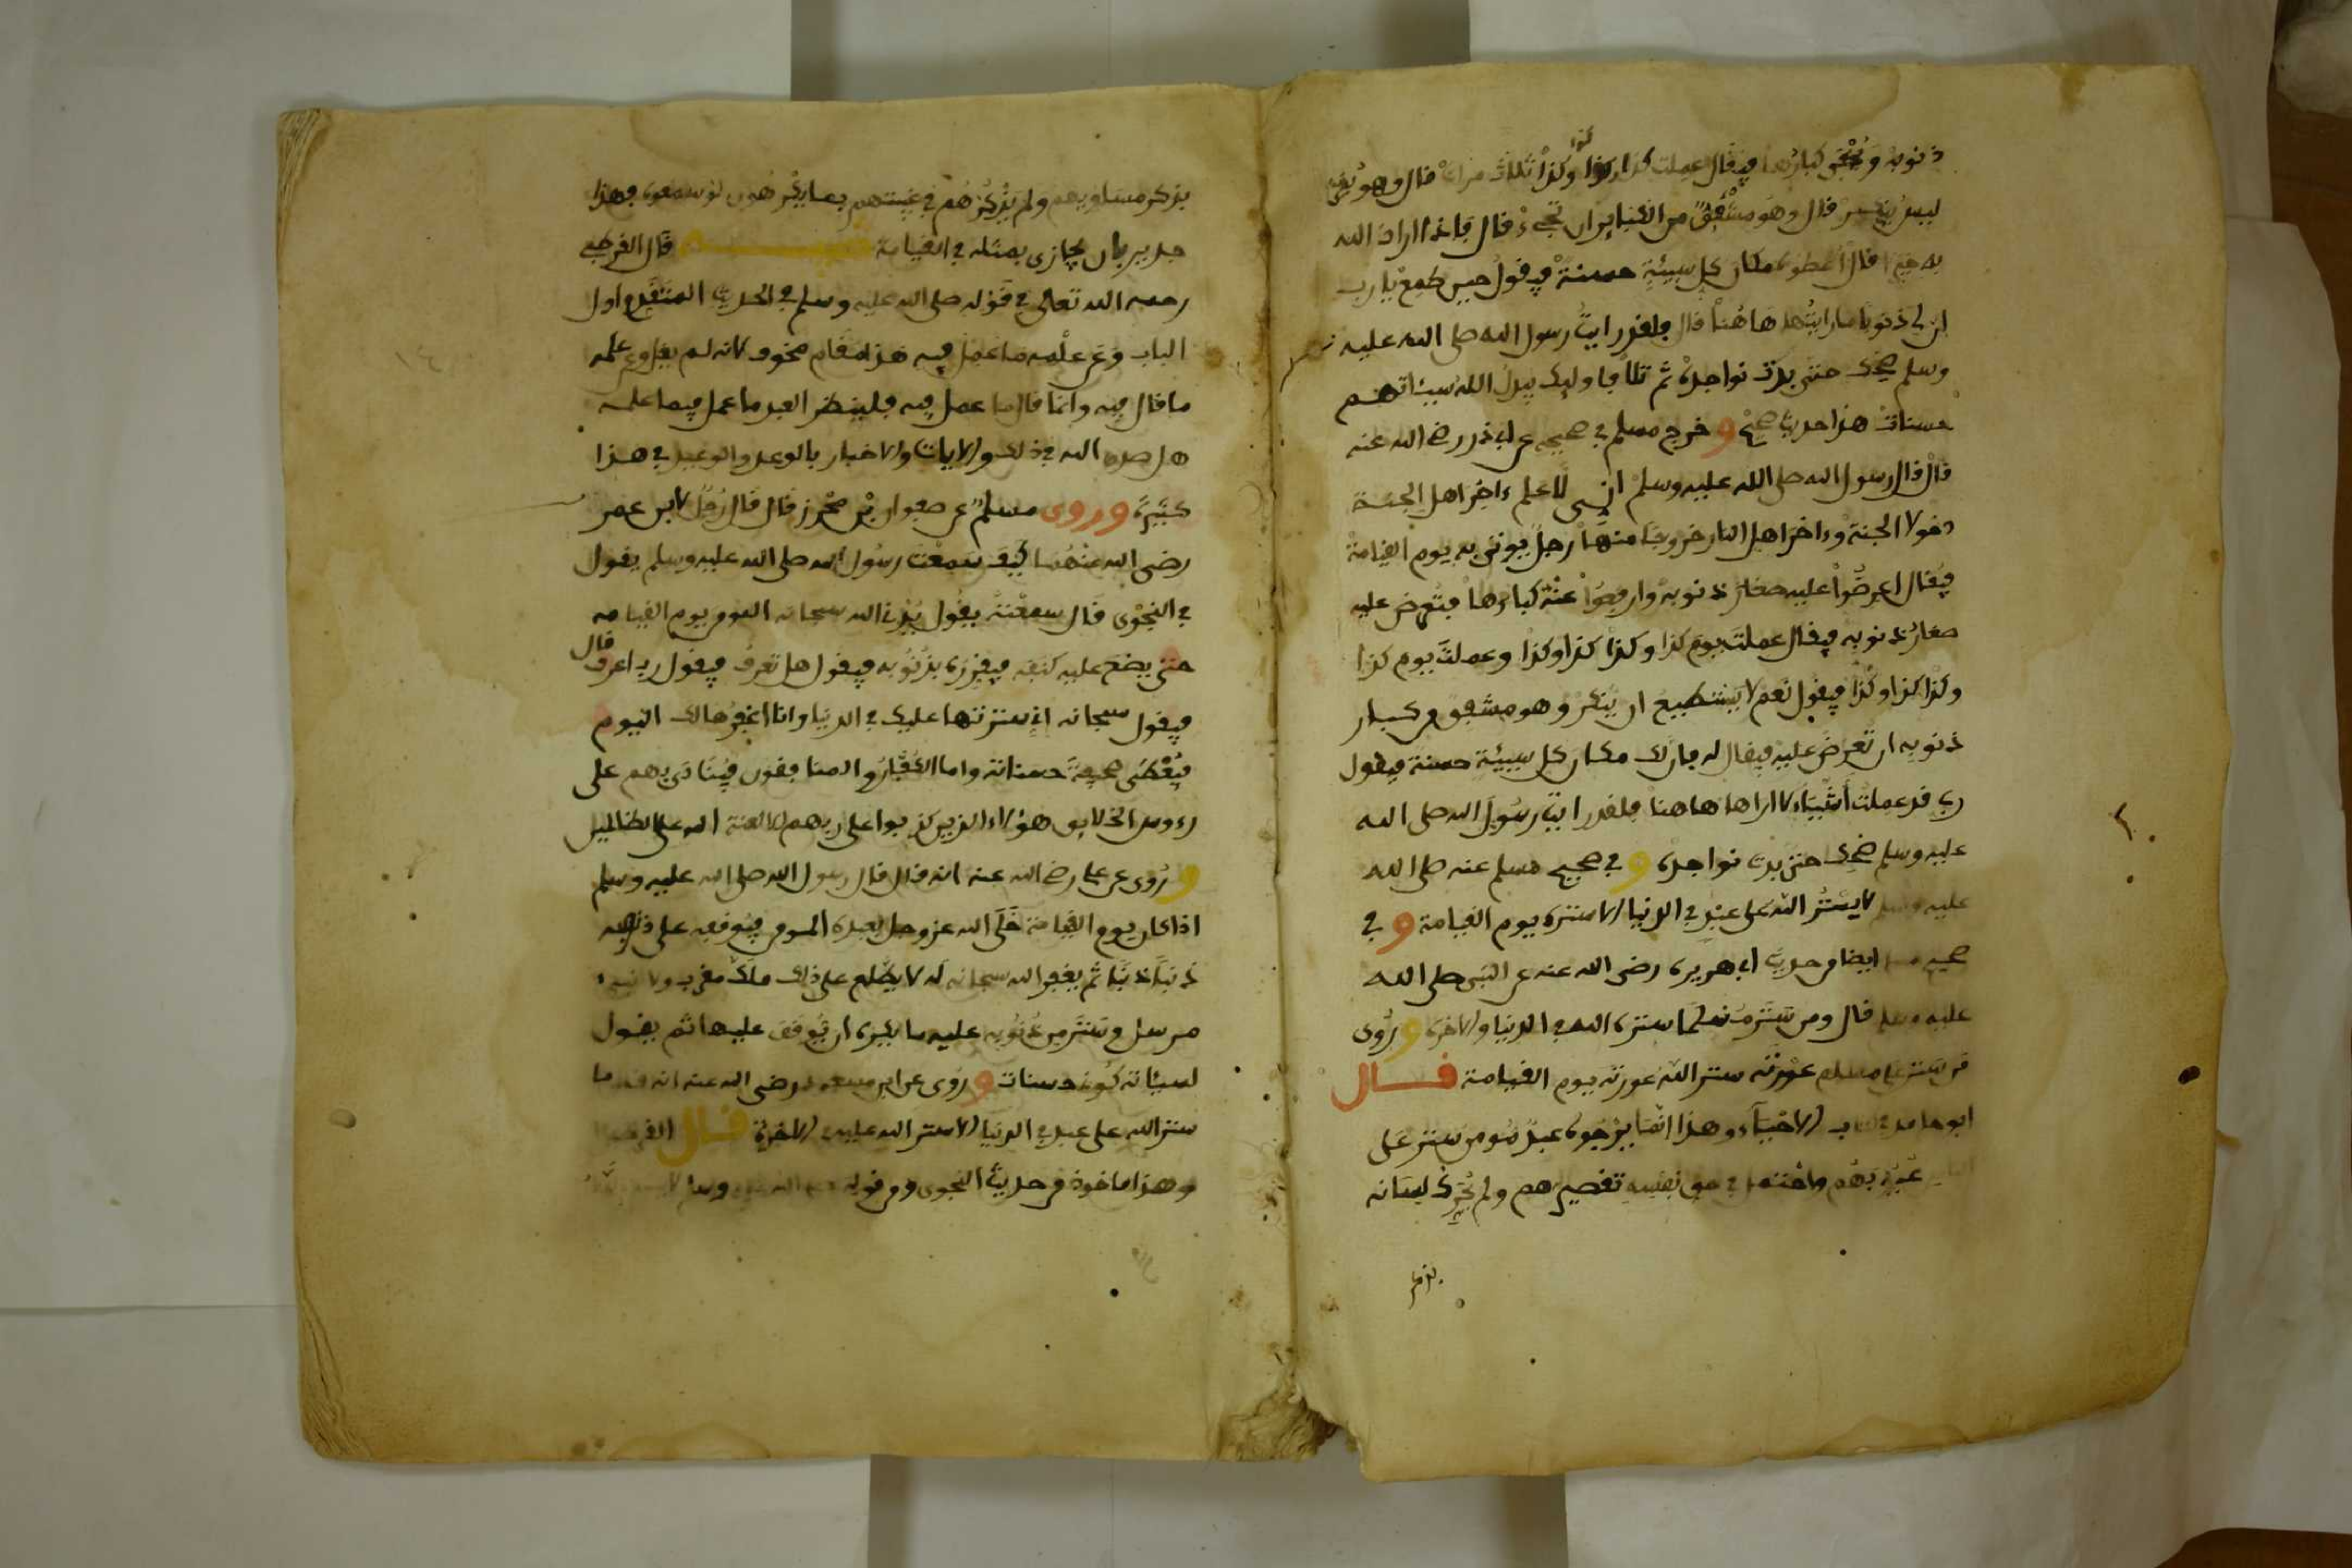 ذنوبه وتخبى كبارها فيقال عملت كذا وكذا وكذا ثلاث مرات قال وهو يقر
ليس ينكر قال وهو مشفق من الكبائر ان تجيء قال فاذا اراد الله
به خيرا قال أعطوه مكان كل سيئة حسنة فيقول حين طمع يارب
إن لي ذنوبا ما رايتها هاهنا قال فلقد رايت رسول الله صلى الله عليه
وسلم يضحك حتى بدت نواجذه ثم تلا فاوليك يبدل الله سيئاتهم
حسنات هذا حديث صحيح وخرج مسلم في صحيحه عن ابي ذر رضي الله عنه
قال قال رسول الله صلى الله عليه وسلم إني لأعلم ءاخر اهل الجنة
دخولا الجنة وءاخر اهل النار خروجا منها رجل يوتى به يوم القيامة
فيقال اعرضوا عليه صغار ذنوبه وارفعوا عنه كبارها فتعرض عليه
صغار ذنوبه فيقال عملت يوم كذا وكذا كذا وكذا وعملت يوم كذا
وكذا كذا وكذا فيقول نعم لا يستطيع ان ينكر وهو مشفق من كبار
ذنوبه ان تعرض عليه فيقال له فان لك مكان كل سيئة حسنة فيقول
رب قد عملت أشياء لا اراها هاهنا فلقد رايت رسول الله صلى الله
عليه وسلم ضحك حتى بدت نواجذه وفي صحيح مسلم عنه صلى الله
عليه وسلم لا يستر الله على عبد في الدنيا الا ستره يوم القيامة وفي
صحيح مسلم ايضا من حديث ابي هريرة رضى الله عنه عن النبي صلى الله
عليه وسلم قال ومن ستر مسلما ستره الله في الدنيا والاخرة وروى
من ستر على مسلم عورته ستر الله عورته يوم القيامة قال
ابو حامد في كتاب الاحياء وهذا انما يرجوه عبد مومن ستر على
الناس عيوبهم واحتمل في حق نفسه تقصيرهم ولم يحرك لسانه
بذكر
بذكر مساويهم ولم يذكرهم في غيبتهم بما يكرهون لو سمعوه فهذا
جدير بان يجازى بمثله في القيامة قال القرطبي
رحمه الله تعالى في قوله صلى الله عليه وسلم في الحديث المتقدم اول
الباب وعن علمه ما عمل فيه هذا مقام مخوف لانه لم يقل وعن علمه
ما قال فيه وانما قال ما عمل فيه فلينظر العبد ما عمل فيما علمه
هل صدق الله في ذلك والايات والاخبار بالوعد والوعيد في هذا
كثيرة وروى مسلم عن صفوان بن محرز قال قال رجل لابن عمر
رضى الله عنهما كيف سمعت رسول الله صلى الله عليه وسلم يقول
في النجوى قال سمعته يقول يدني الله سبحانه المومن يوم القيامه
حتى يضع عليه كنفه فيقرره بذنوبه فيقول هل تعرف فيقول رب اعرف قال
فيقول سبحانه اني سترتها عليك في الدنيا وانا اغفرها لك اليوم
فيعطى صحيفة حسناته واما الكفار والمنافقون فينادى بهم على
رءوس الخلايق هؤلاء الذين كذبوا على ربهم الا لعنة الله على الظالمين
وروى عن علي رضي الله عنه انه قال قال رسول الله صلى الله عليه وسلم
اذا كان يوم القيامة خلى الله عز وجل بعبده المومن فيوقفه على ذنوبه
ذنبا ذنبا ثم يغفر الله سبحانه له لا يطلع على ذلك ملك مقرب ولا نبي
مرسل وستر من ذنوبه عليه ما يكره ان يوقف عليها ثم يقول
لسيئاته كوني حسنات وروى عن ابن مسعود رضى الله عنه انه قال ما
ستر الله على عبد في الدنيا الا ستر الله عليه في الاخرة قال القرطبي
وهذا ماخوذ من حديث النجوى ومن قوله صلى الله عليه وسلم لا يستر الله